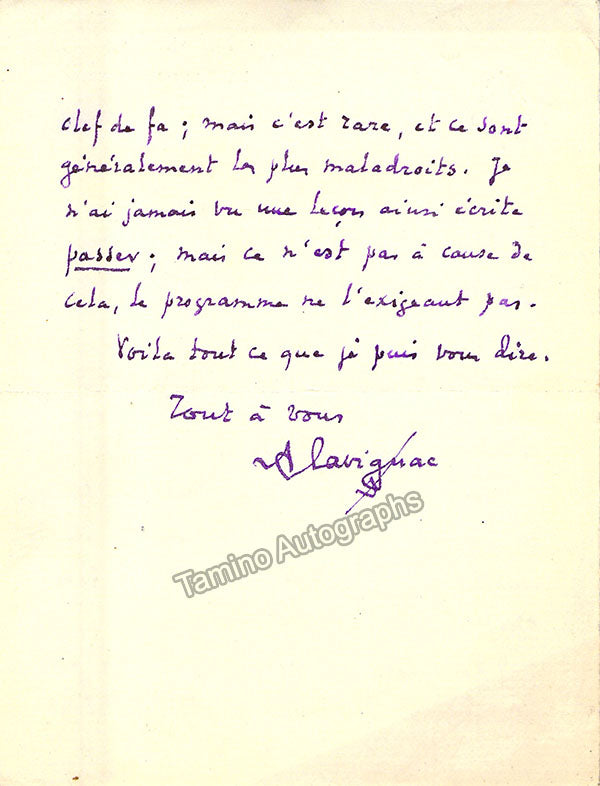 clef de fa ; mais c'est rare, et ce sont
généralement les plus maladroits. Je
n'ai jamais vu une leçon ainsi écrite
passer ; mais ce n'est pas à cause de
cela, le programme ne l'exigeant pas.
Voilà tout ce que je puis vous dire.
Tout à vous
A Lavignac
Tamino Autographs